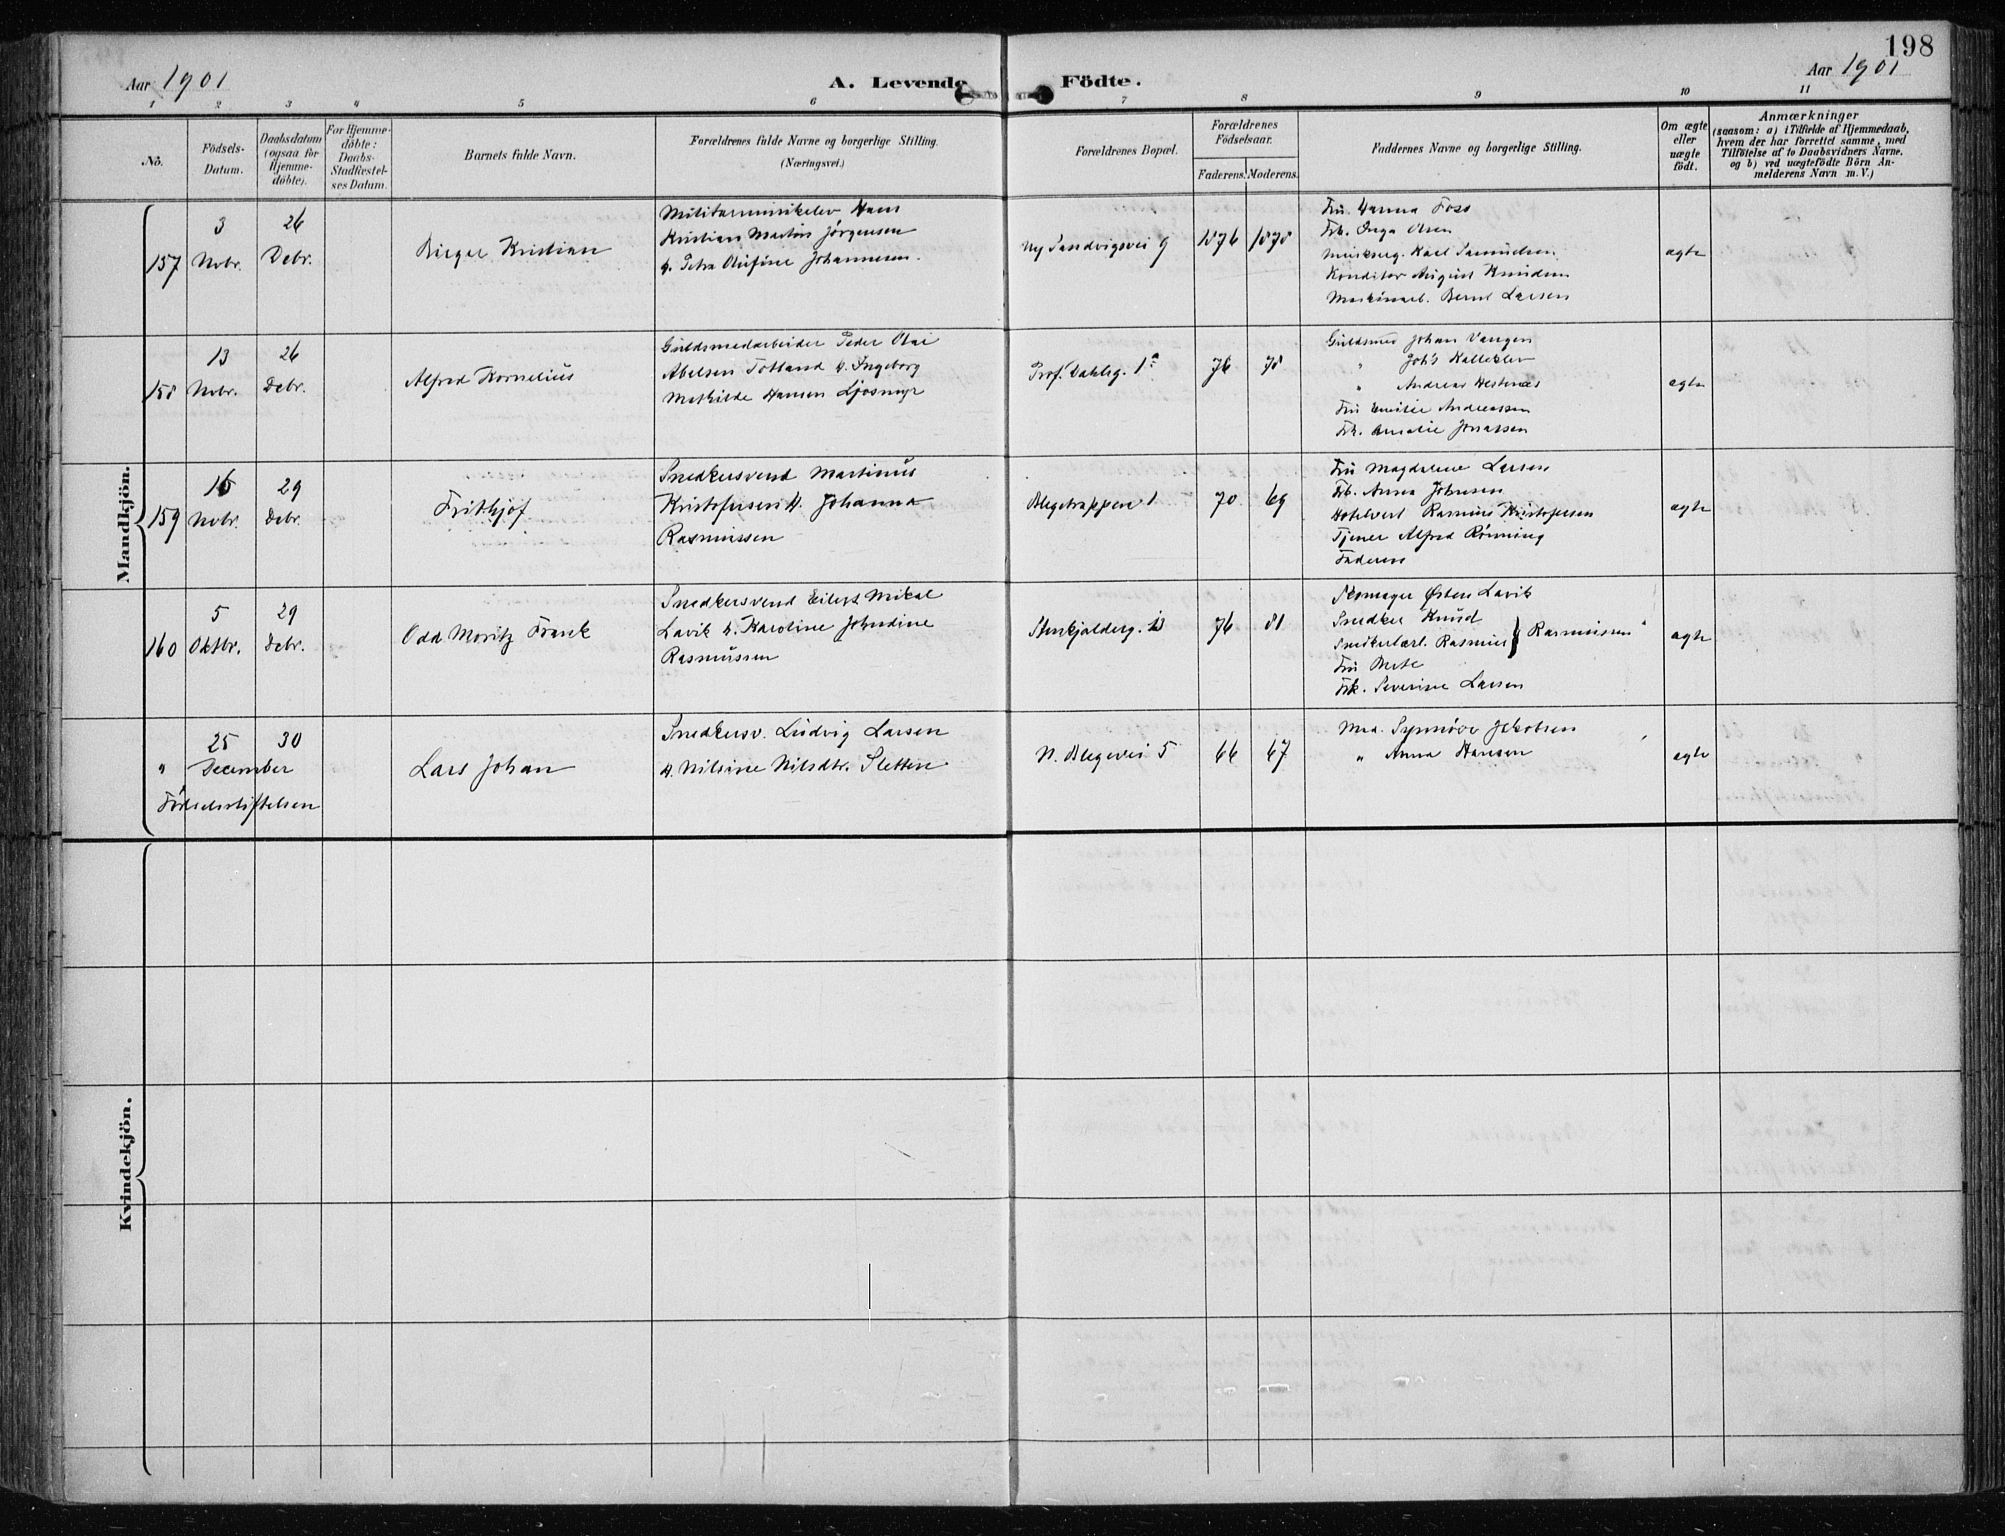 198
Aar 1901
A. Levende Födte.
Aar 1901
1 2 3 4 5 6 7 8 9 10 11
No.
Födsels-
Datum.
Daabsdatum
(ogsaa for
Hjemme-
døbte).
For Hjemme-
døbte:
Daabs-
Stadfæstel-
ses Datum.
Barnets fulde Navn.
Forældrenes fulde Navne og borgerlige Stilling.
(Næringsvei.)
Forældrenes Bopæl.
Forældrenes
Födselsaar.
Faderens. Moderens.
Faddernes Navne og borgerlige Stilling.
Om ægte
eller
uægte
födt.
Anmærkninger
(saasom: a) i Tilfælde af Hjemmedaab,
hvem der har forrettet samme, med
Tilføielse af to Daabsvidners Navne.
og b) ved uægtefödte Börn An-
melderens Navn m. V.)
Mandkjön.
157
3
Novbr.
26
Debr.
Birger Kristian
Hans
Kristian Martin Jørgensen
h. Petra Olufine Johannesen.
Ny Sandvigsvei 9
1876
1878
Fru Hanna Foss
Frk. Inga Olsen
Karl Samuelsen
Konditor August Knudsen
Maskinarb. Bernt Larsen
ægte
158
13
Novbr.
26
Debr.
Alfred Kornelius
Guldsmedarbeider Peder Olai
Abelsen Totland h. Ingeborg
Mathilde Hansen Ljosmyr
Prof. Dahlsg. 1a
76
78
Guldsmed Johan Vangen
" Joh's Kalleklev
" Andreas Hestenes
Fru Emilie Andreassen
Frk. Amalie Jonassen
ægte
159
16
Novbr.
29
Debr.
Frithjof
Snedkersvend Martinus
Kristofersen h. Johanna
Rasmussen
Blegetrappen 1
70
69
Fru Magdalene Larsen
Frk. Anna Johnsen
Hotelvert Rasmus Kristofersen
Tjener Alfred Rønning
Faderen
ægte
160
5
Oktbr.
29
Debr.
Odd Moritz Frank
Snedkersvend Eilert Mikal
Lavik h. Karoline Johndine
Rasmussen
Stenkjelderg. 13
76
81
Skomager Østen Lavik
Snedker Knud
Snedkerlærl. Rasmus } Rasmussen
Fru Mete
Frk. Severine Larsen
ægte
"
25
December
30
Fødselsstiftelsen
Lars Johan
Snedkersv. Ludvig Larsen
h. Nilsine Nilsdtr. Sletten
N. Blegevei 5
66
67
Mad. Synnøve Jakobsen
" Anna Hansen
ægte
Kvindekjön.